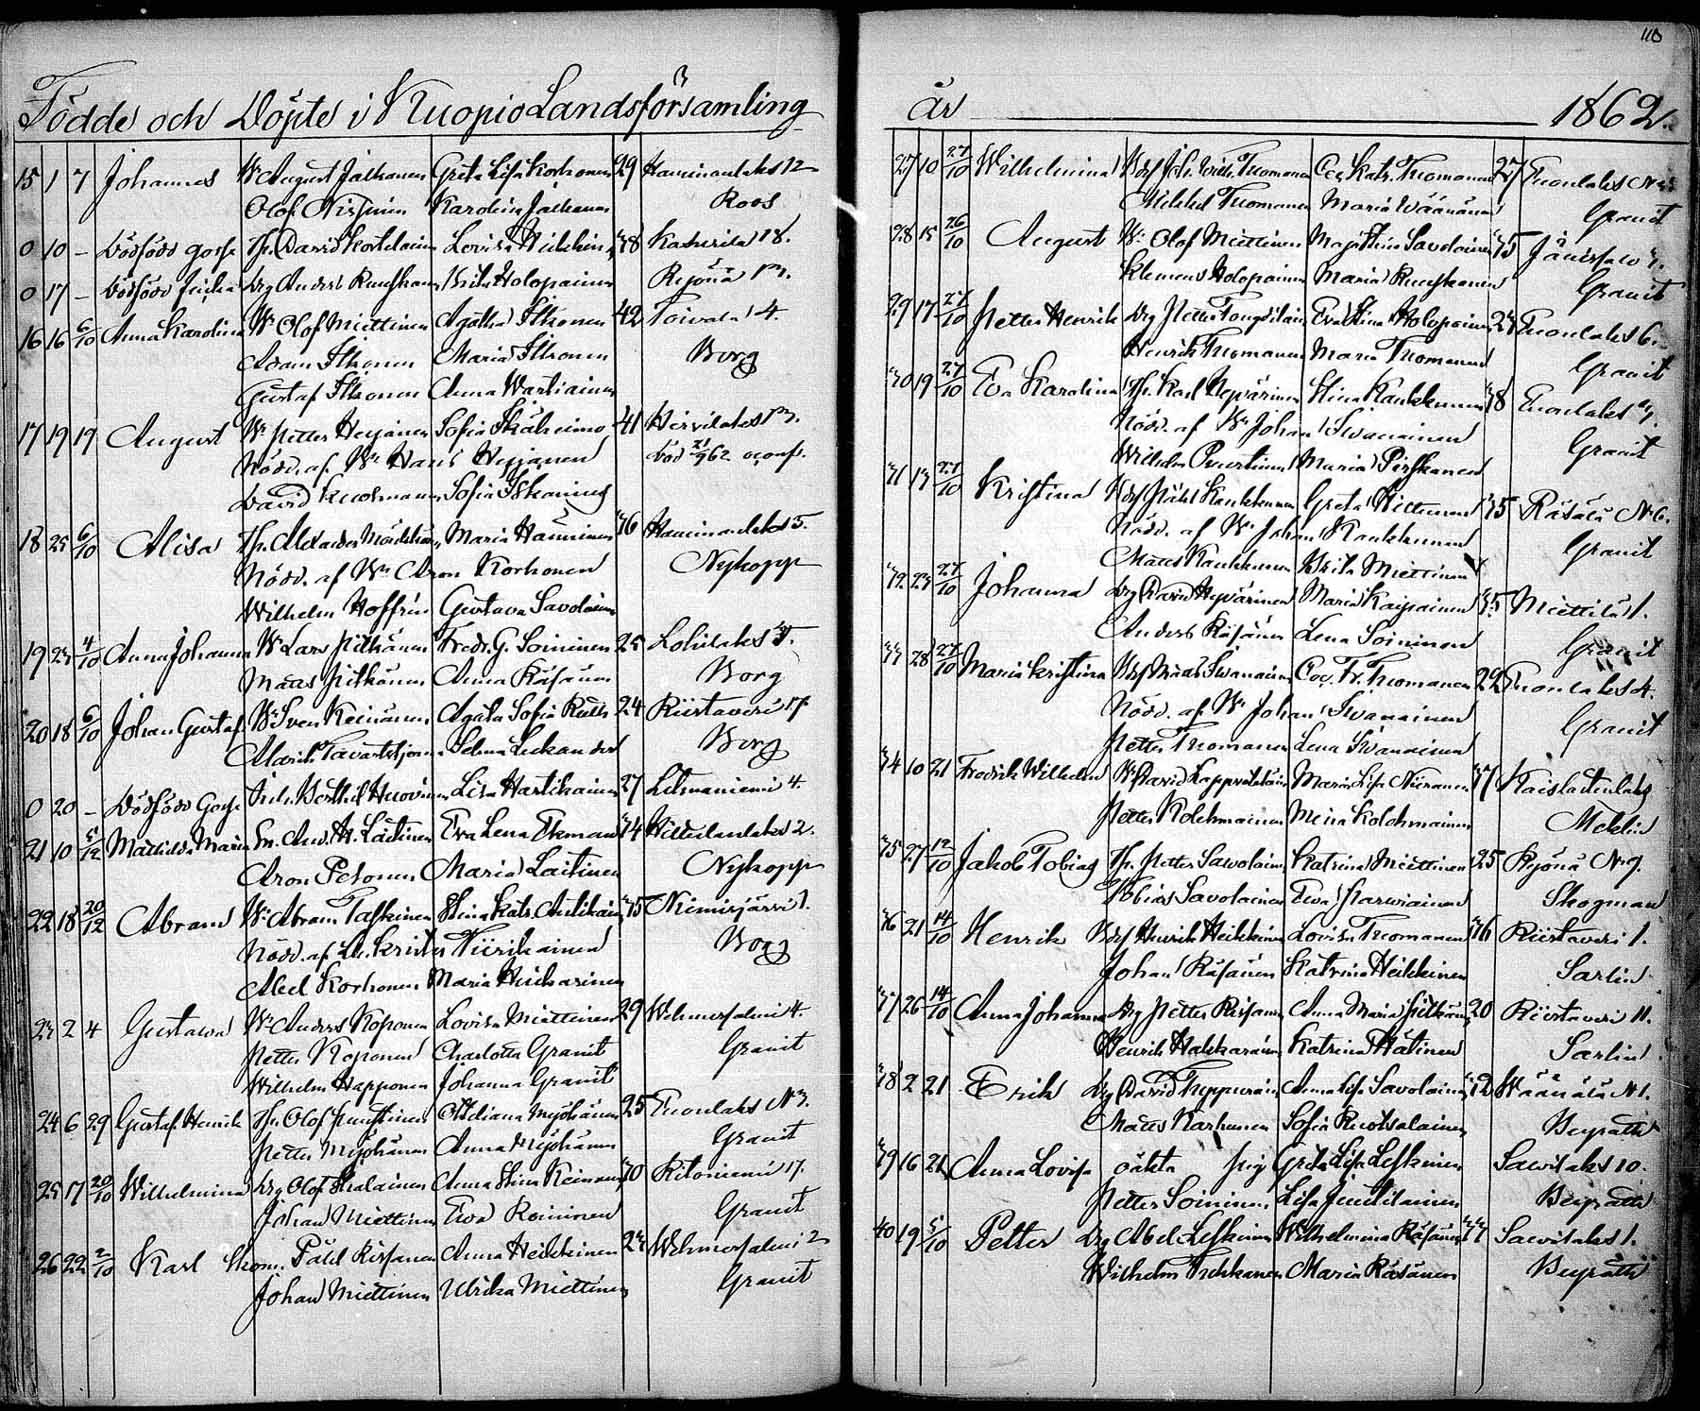 Födde och Döpte i Kuopio Landsförsamling
15 1 7 Johannes Wr August Jalkanen Greta Lisa Korhonen 29 Haminanlaks 12
Olof Nissinen Karolina Jalkanen Roos
0 10 – Dödfödd gosse Hr. David Kortelainen Lovisa Heikkinen 38 Kasurila 18.
0 17 – Dödfödd flicka Drg Anders Ruuskanen Brita Holopainen Ryönä 13.
16 16 6/10 Anna Karolina Wr Olof Miettinen Agatha Itkonen 42 Toivala 4.
Adam Itkonen Maria Itkonen Borg
Gustaf Itkonen Anna Wartiainen
17 19 19 August Wr Petter Heyänen Sofia Ikäheimo 41 Hirvilaks 13.
Nödd. af Wr Hans Heyjänen död 21/9 62
David Kuosmanen Sofia Itkonen
18 25 6/10 Alisa Hr. Alexander Maria Hänninen 36 Haminanlaks 5.
Nödd. af Wr Aron Korhonen Nykopp
Wilhelm Hoffrén Gustava Savolainen
19 23 4/10 Anna Johanna Wr Lars Pitkänen Fredr. G. Soininen 25 Lohilaks 5.
Matts Pitkänen Anna Räsänen Borg
20 18 6/10 Johan Gustaf Wr Sven Keinänen Agata Sofia Ruth 24 Riistaveri 17.
Alarik Tavaststjerna Selma Leckander Borg
0 20 – Dödfödd Gosse Berthil Huovinen Lisa Hartikainen 27 Litmaniemi 4.
21 10 5/12 Mathilda Maria And. H. Laitinen Eva Lena Ekman 34 2.
Aron Pesonen Maria Laitinen Nykopp
22 18 20/12 Abram Wr Abram Taskinen Stina Katr. Antikain 35 Niinisjärvi 1.
Nödd. af Tiirikainen Borg
Abel Korhonen Maria
23 2 4 Gustava Wr Anders Koponen Lovisa Miettinen 29 Wehmersalmi 4.
Petter Koponen Charlotta Granit Granit
Wilhelm Happonen Johanna Granit
24 6 29 Gustaf Henrik Hr. Olof Puustinen Ottiliana Myöhänen 25 Enonlaks N 3.
Petter Myöhänen Anna Myöhänen Granit
25 17 20/10 Wilhelmina Drg Olof Anna Stina Keinänen 30 Ritoniemi 17.
Johan Miettinen Eva Roininen Granit
26 22 2/10 Karl Skom. Påhl Rissanen Anna Heikkinen 23 Wehmersalmi 2
Johan Miettinen Ulrika Miettinen Granit
år 1862.
110
27 10 27/10 Wilhelmina Joh. Wilh. Tuomonen Cec. Katr. Tuomonen 27 Enonlaks N
Mikkel Tuomonen Maria Wäänänen Granit
28 15 26/10 August Wr Olof Miettinen Maja Stina Savolainen 35 Jänissalo 3.
Klemens Holopainen Maria Ruuskanen Granit
29 17 27/10 Petter Henrik Drg Petter Eva Stina Holopainen 23 Enonlaks 6.
Henrik Tuomanen Maria Tuomanen Granit
30 19 27/10 Eva Karolina Hr. Karl Hyvärinen Stina Kaukkunen 38 Enonlaks 7.
Nödd. af Wr Johan Iivanainen Granit
Wilhelm Maria Pirskanen
31 13 27/10 Kristina Påhl Kaukkunen Greta 35 Räsälä N 6.
Nödd. af Wr Johan Kaukkunen Granit
Matts Kaukkunen Brita Miettinen
32 23 27/10 Johanna Drg David Hyvärinen Maria Kaipainen 35 Miettilä 1.
Anders Räsänen Lena Soininen Granit
33 28 27/10 Maria Kristina Matts Iivanainen Cec. Fr. Tuomanen 22 Enonlaks 4.
Nödd. af Wr Johan Iivanainen Granit
Petter Tuomanen Lena Iivanainen
34 10 21 Fredrik Wilhelm Wr David Lappveteläinen Maria Lisa Niiranen 37 Kaislastenlaks
Petter Kolehmainen Maria Kolehmainen Meklin
35 27 12/10 Jakob Tobias Hr. Petter Savolainen Katrina Miettinen 25 Ryönä N 9.
Tobias Savolainen Eva Skogman
36 21 14/10 Henrik Henrik Heikkinen Lovisa Tuomanen 36 Riistaveri 1.
Johan Räsänen Katrina Heikkinen Sarlin
37 26 14/10 Anna Johanna Drg Petter Rissanen Anna Maria Pitkänen 20 Riistaveri 11.
Henrik Hakkarainen Katrina Sarlin
38 2 21 Erik Drg David Anna Lisa Savolainen 42 Wäänälä N 1.
Matts Karhunen Sofia Ruotsalainen Beyrath
39 16 21 Anna Lovisa oäkta pig Greta Lisa Leskinen Sawilaks 10.
Petter Soininen Lisa Beyrath
40 19 5/10 Petter Drg Abel Leskinen Wilhelmina Räsänen 33 Sawilaks 1.
Wilhelm Tuhkanen Maria Räsänen Beyrath